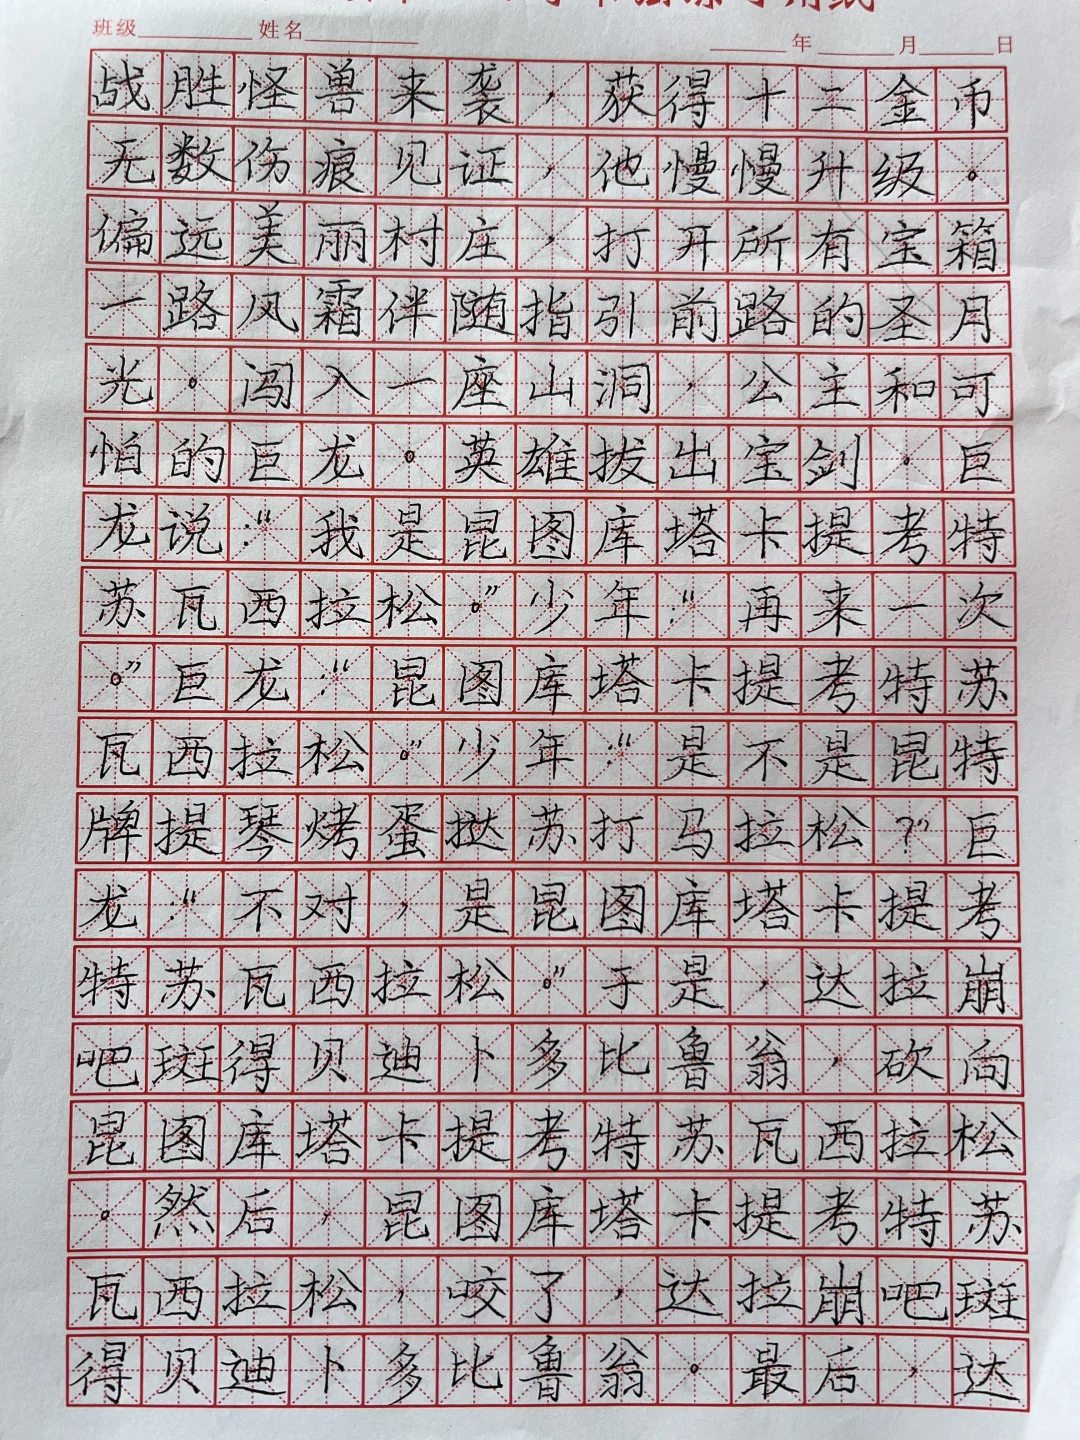 班级 姓名 年 月 日
战胜怪兽来袭，获得十二金币
无数伤痕见证，他慢慢升级。
偏远美丽村庄，打开所有宝箱
一路风霜伴随指引前路的圣月
光。闯入一座山洞，公主和可
怕的巨龙。英雄拔出宝剑。巨
龙说：“我是昆图库塔卡提考特
苏瓦西拉松。”少年：“再来一次
。”巨龙：“昆图库塔卡提考特苏
瓦西拉松。”少年：“是不是昆特
牌提琴烤蛋挞苏打马拉松？”巨
龙：“不对，是昆图库塔卡提考
特苏瓦西拉松。”于是，达拉崩
吧斑得贝迪卜多比鲁翁，砍向
昆图库塔卡提考特苏瓦西拉松
。然后，昆图库塔卡提考特苏
瓦西拉松，咬了，达拉崩吧斑
得贝迪卜多比鲁翁。最后，达